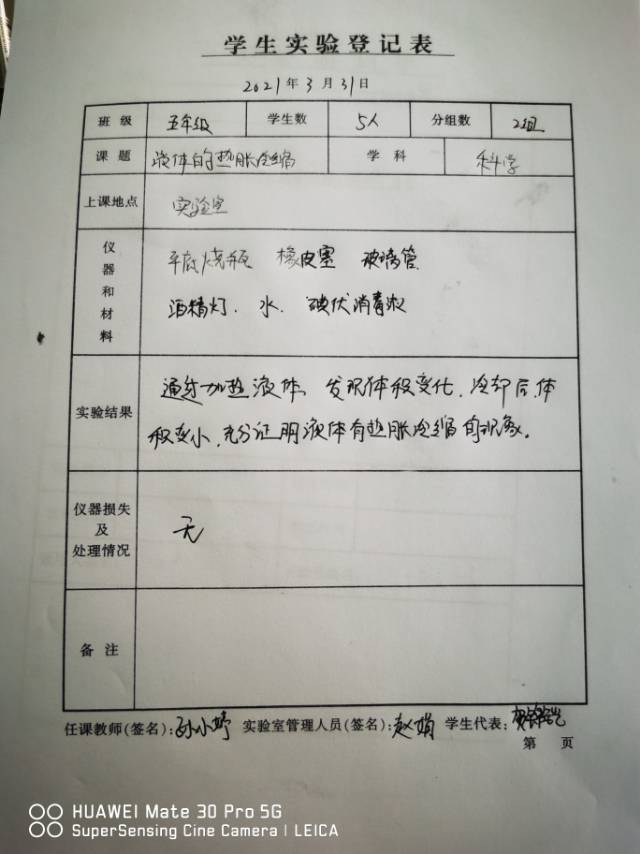 学生实验登记表
2021年3月31日
班级 五年级 学生数 5人 分组数 2组
课题 液体的热胀冷缩 学科 科学
上课地点 实验室
仪器和材料 平底烧瓶 橡皮塞 玻璃管
酒精灯、水、碘伏消毒液
实验结果 通过加热液体,发现体积变化,冷却后,体
积变小,充分证明液体有热胀冷缩的现象。
仪器损失及处理情况 无
备注
任课教师(签名):孙小婷 实验室管理人员(签名):赵娟 学生代表:
第 页
HUAWEI Mate 30 Pro 5G
SuperSensing Cine Camera | LEICA